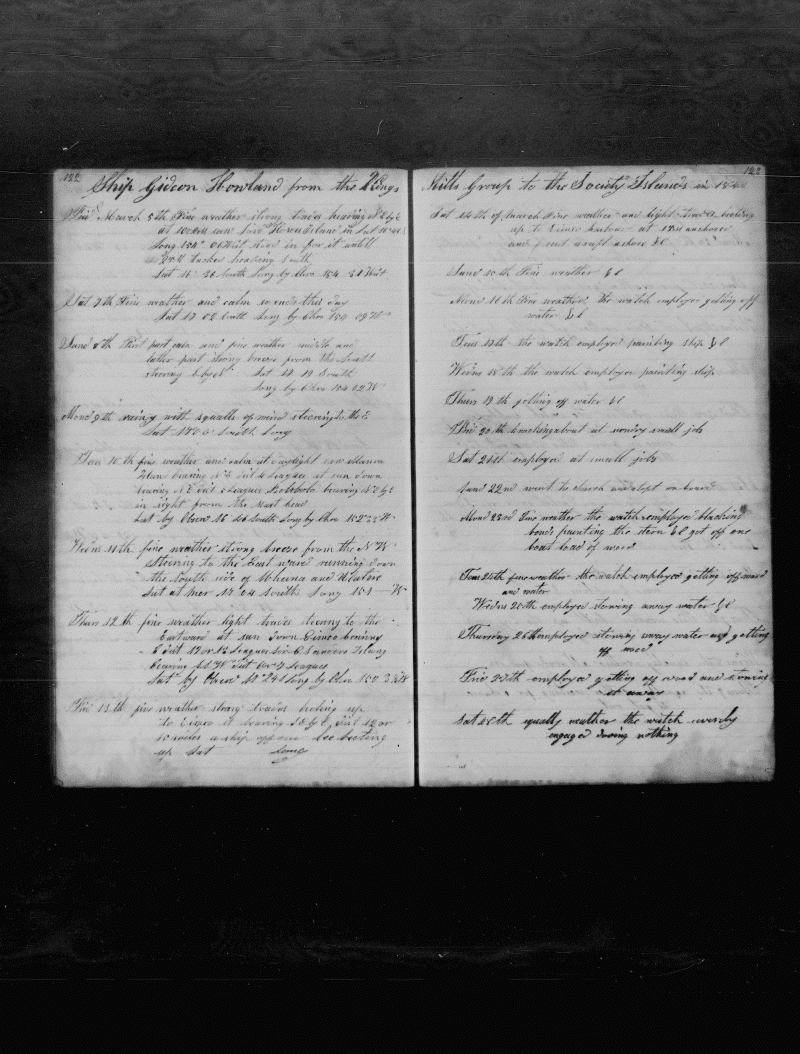 122
Ship Gideon Howland from the Kings
Fri March 6th Fine weather strong trades heading N E by E
at 10 AM saw Island in Lat 16
Long 154° 06 West stood in for it untill
heading South
Lat 16 26 South Long by Chro 154 31 West
Sat 7th Fine weather and calm so ends this day
Lat 17 02 South Long by Chro 154 09 W
Sund 8th First part calm and fine weather middle and
latter part strong breeze from the South
steering E by S Lat 17 19 South
Long by Chro 154 02 W
Mond 9th rainy with squalls of wind steering to the E
Lat 17 South Long
Tues 10th fine weather and calm at daylight saw
Islan bearing N E Dist Leagues at sun down
bearing N E Dist 5 Leagues Bolobolo bearing N E by E
in sight from the mast head
Lat by Obsn 16 46 South Long by Chro 152 22 W
Wedns 11th fine weather strong breeze from the N W
Steering to the East ward running down
the South side of and
Lat at mer 17 04 South Long 151 — W
Thurs 12th fine weather light trades steering to the
Eastward at sun down Eimeo bearing
E Dist 12 or 13 Leagues Sir C Sanders Islang
bearing Dist 6 or 7 Leagues
Lat by Obsn 17 24 Long by Chro 150 3 W
Fri 13th fine weather strong trades beting up
to Eimeo it bearing S E by E Dist 12 or
15 miles a ship off our lee beeting
up Lat Long
122
Mills Group to the Society Islands in 184
Sat 14th of March Fine weather and light trades beeting
up to Eimeo harbour at 12 M anchored
and went ashore &c
Sund 15th Fine weather &c
Mond 16th Fine weather the watch employed getting off
water &c
Tues 17th the watch employed painting ship &c
Wedns 18th the watch employed painting ship
Thurs 19th getting off water &c
Fri 20th knocking about at sundry small jobs
Sat 21st employed at small jobs
Sund 22nd went to church and slept on board
Mond 23rd Fine weather the watch employed blacking
bends painting the stern &c got off one
boat load of wood
Tues 24th fine weather the watch employed getting off wood
and water
Wedns 25th employed stowing away water &c
Thursday 26th employed stowing away water and getting
off wood
Frid 27th employed getting off wood and stowing
it away
Sat 28th squally weather the watch
engaged doing nothing